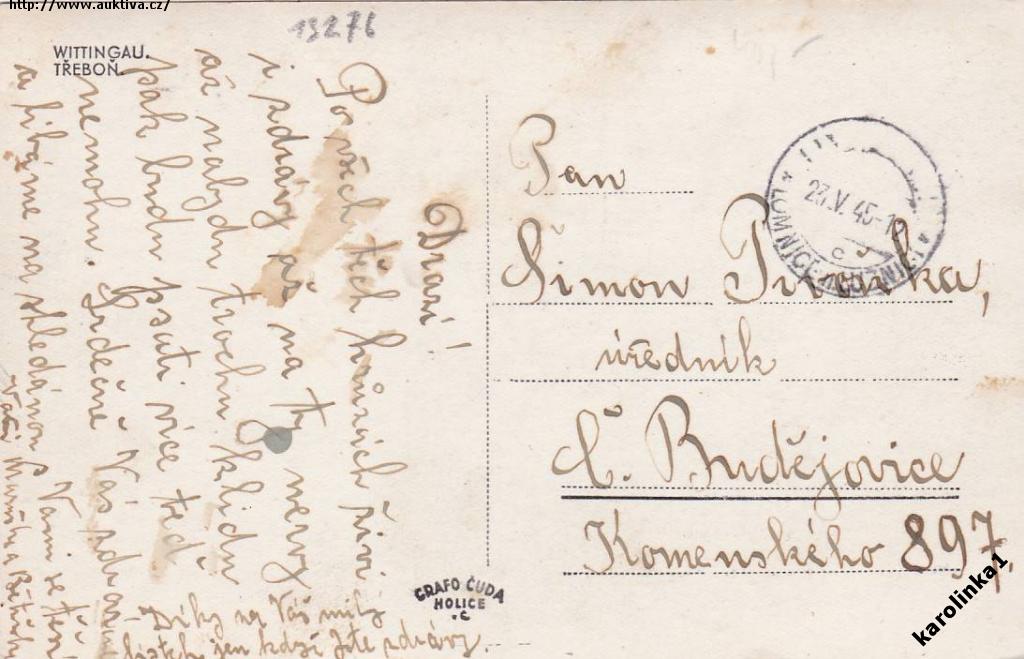 http://www.auktiva.cz/
13276
WITTINGAU.
TŘEBOŇ.
Drazí!
Po všech těch hrůzách živi
i zdrávy až na ty nervy
až nabydu trochu klidu
pak budu psáti více teď
nemohu. Srdečně Vás zdraví
a líbáme na shledanou s Vámi se těší
Vaši
Díky na Váš milý
lístek, jen když jste zdrávy.
Pan
Šimon
úředník
Č. Budějovice
Komenského 897.
LOMNICE
23.V.45-1
GRAFO ČUDA
HOLICE
karolinka1